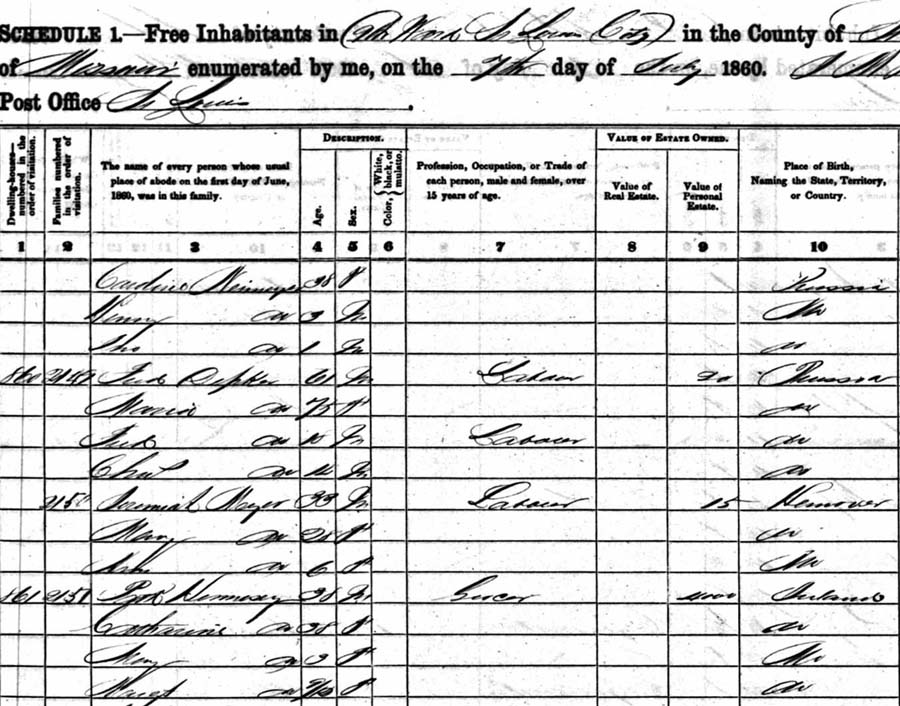 SCHEDULE 1.—Free Inhabitants in Ward St Louis City in the County of
of Missouri enumerated by me, on the 7th day of July 1860.
Post Office St Louis.
Dwelling-houses—numbered in the order of visitation.
Families numbered in the order of visitation.
The name of every person whose usual place of abode on the first day of June, 1860, was in this family.
DESCRIPTION.
Age.
Sex.
Color, White, black, or mulatto.
Profession, Occupation, or Trade of each person, male and female, over 15 years of age.
VALUE OF ESTATE OWNED.
Value of Real Estate.
Value of Personal Estate.
Place of Birth, Naming the State, Territory, or Country.
1 2 3 4 5 6 7 8 9 10
38 f Prussia
Henry do 3 m Mo
do 1 m do
860 2149 Fred 61 m Labour Prussia
Maria do f do
Fred do m Labourer do
do 14 m do
2150 Jeremiah Meyer 33 m Labourer 15 Hanover
Mary do 28 f do
do 6 f Mo
861 2151 Pat Hennesey 38 m Grocer Ireland
Catharine do 38 f do
Mary do 3 f Mo
Margt do f do